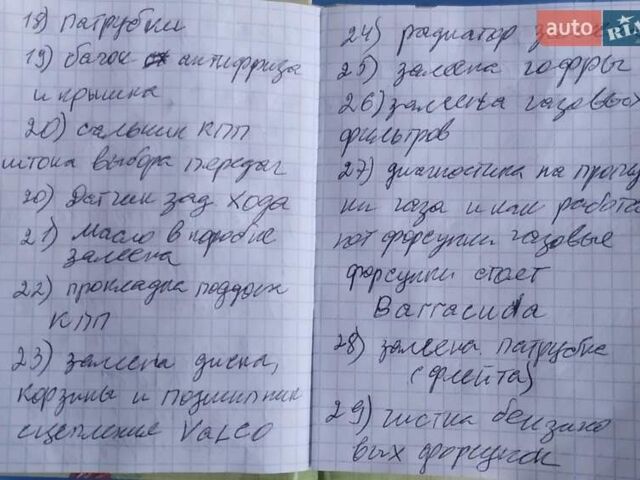 18) патрубки
19) бачок антифриза
и крышка
20) сальник КПП
штока выбора передач
20) Датчик зад хода
21) Масло в коробке
замена
22) прокладка поддон
КПП
23) замена диска,
корзины и подшипник
сцепление Valeo
24) радиатор
25) замена гофры
26) замена газовых
фильтров
27) диагностика на
ки газа и как работа
ют форсунки газовые
форсунки стоят
Barracuda
28) замена патрубка
(флейта)
29) чистка бензино
вых форсунок
auto RIA